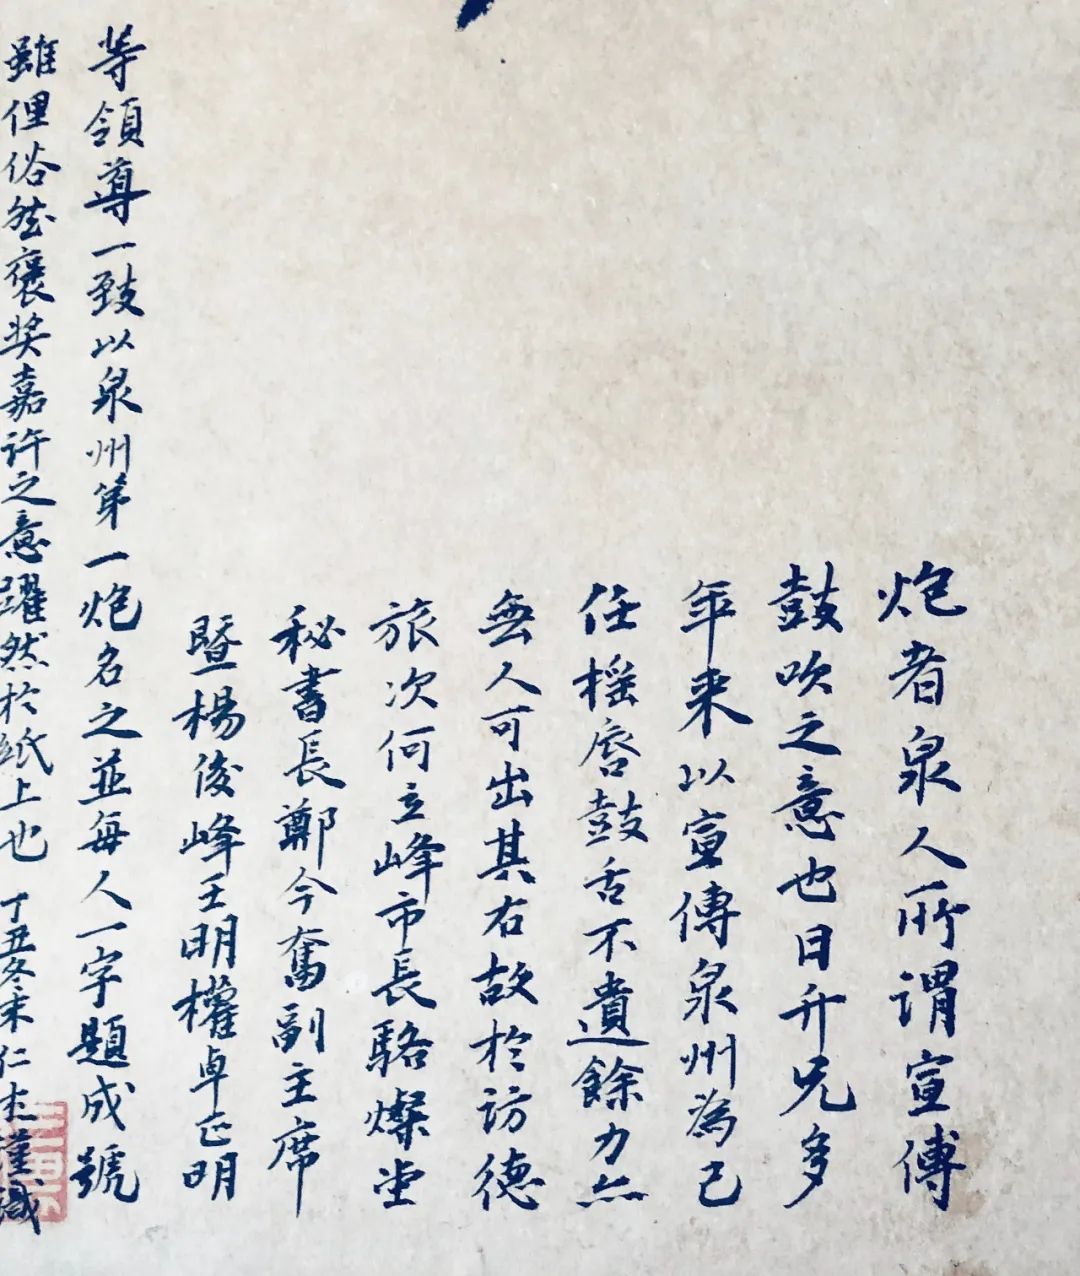 炮者泉人所謂宣傳
鼓吹之意也日升兄多
年来以宣傳泉州為己
任摇唇鼓舌不遺餘力亦
無人可出其右故於訪德
旅次何立峰市長駱燦堂
秘書長鄭今奮副主席
暨楊俊峰王明權卓正明
等領導一致以泉州第一炮名之並每人一字題成號
雖俚俗然褒奖嘉许之意躍然於紙上也 丁丑冬末仁杰謹識